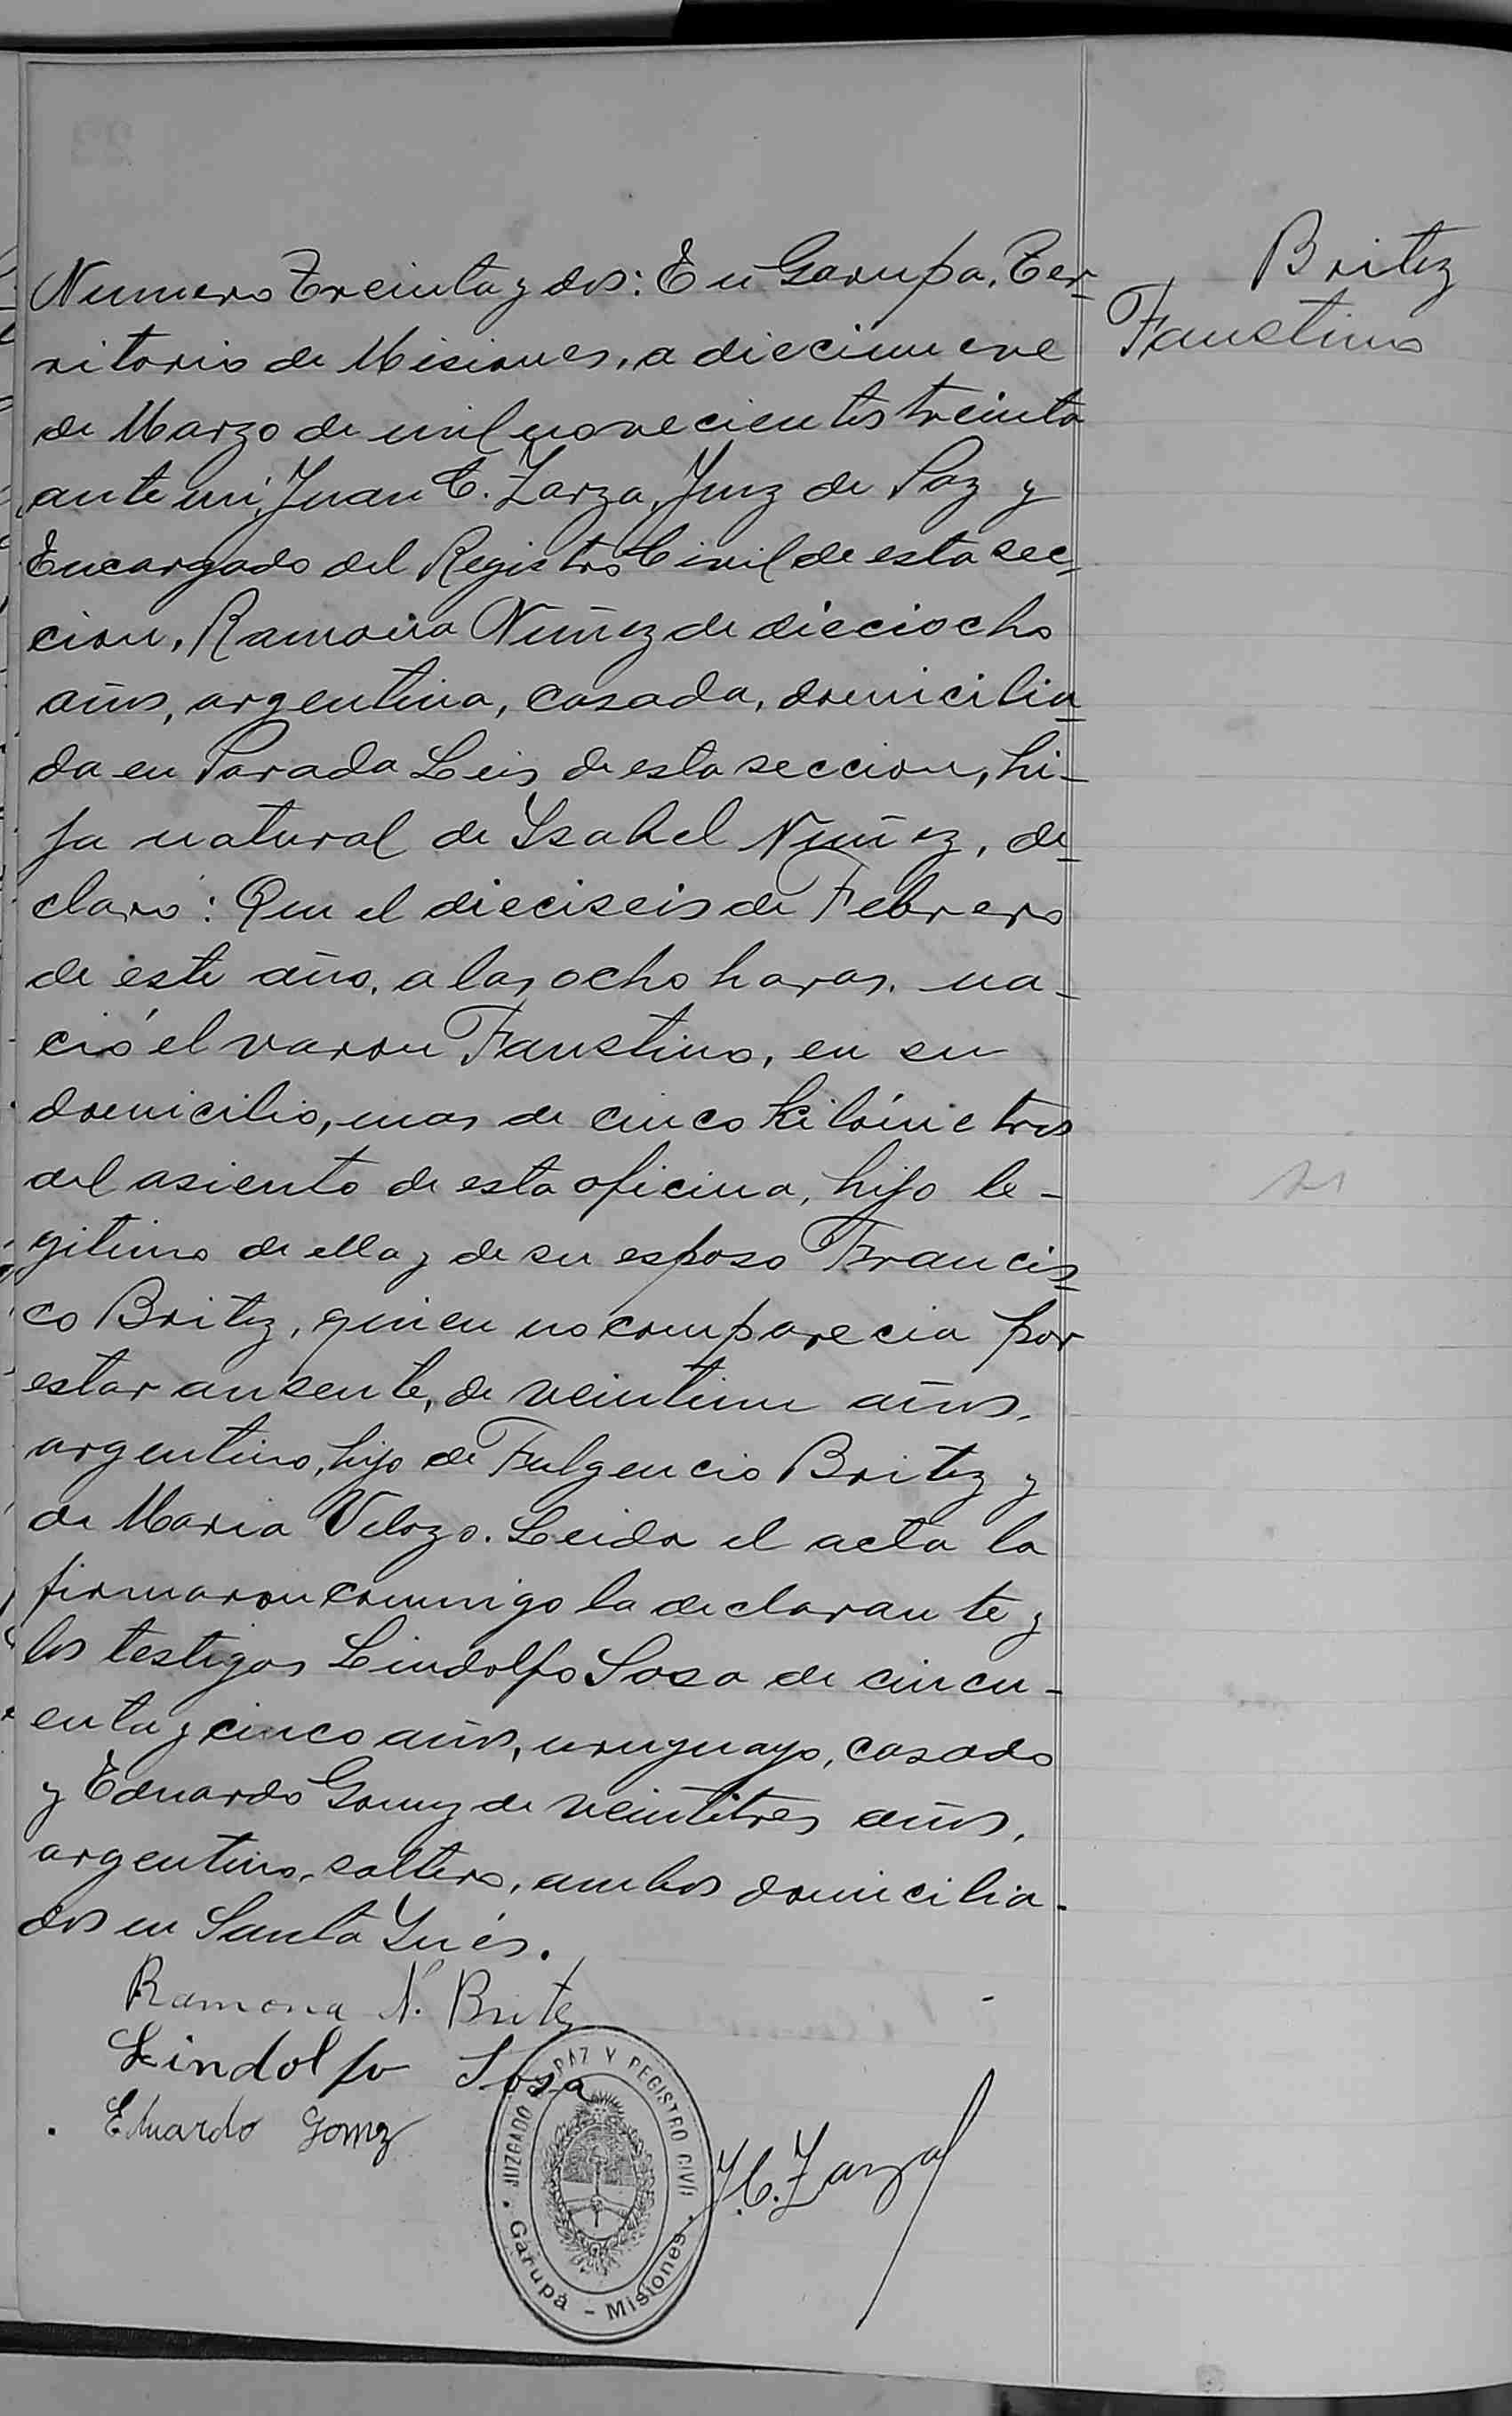 Britez
Faustino
Numero Treinta y dos: En Garupa, Ter-
ritorio de Misiones, a diecinueve
de Marzo de mil novecientos treinta
ante mi, Juan C. Zarza, Juez de Paz y
Encargado del Registro Civil de esta sec-
cion, Ramona Nuñez de dieciocho
años, argentina, casada, domicilia-
da en Parada Leis de esta seccion, hi-
ja natural de Ysabel Nuñez, de-
claró: Que el dieciseis de Febrero
de este año, a las ocho horas, na-
ció el varon Faustino, en su
domicilio, mas de cinco kilómetros
del asiento de esta oficina, hijo le-
gitimo de ella y de su esposo Francis-
co Britez, quien no comparecia por
estar ausente, de veintiun años,
argentino, hijo de Fulgencio Britez y
de Maria Velozo. Leida el acta la
firmaron conmigo la declarante y
los testigos Lindolfo Sosa de cincu-
enta y cinco años, uruguayo, casado
y Eduardo Gomez de veintitres años,
argentino, soltero, ambos domicilia-
dos en Santa Ynés.
Ramona N. Britez
Lindolfo Sosa
Eduardo Gomez
J.C. Zarza
JUZGADO DE PAZ Y REGISTRO CIVIL
Garupá - Misiones